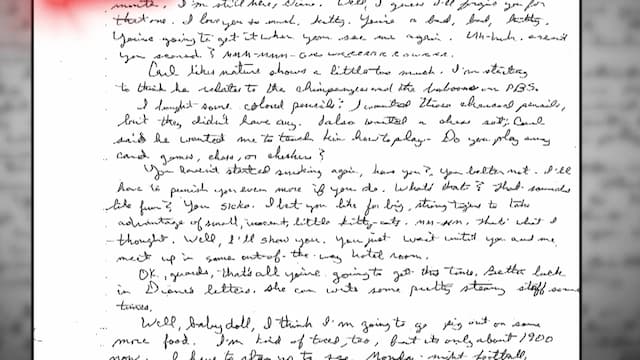 month. I'm still here, Diane. Well, I guess I'll forgive you for
that one. I love you so much, kitty. You're a bad, bad, kitty.
You're going to get it when you see me again. Uh-huh. aren't
you scared?
Carl likes nature shows a little too much. I'm starting
to think he relates to the chimpanzees and the baboons on PBS.
I bought some colored pencils. I wanted those charcoal pencils,
but they didn't have any. I also wanted a chess set; Carl
said he wanted me to teach him how to play. Do you play any
card games, chess, or checkers?
You haven't started smoking again, have you? You better not. I'll
have to punish you even more if you do. What's that? That sounds
like fun? You sicko. I bet you like for big, strong to take
advantage of small, innocent, little kitty-cats. that's what I
thought. Well, I'll show you. You just wait until you and me
meet up in some out-of-the-way hotel room.
OK, guards, that's all you're going to get this time. Better luck
in Diane's letters. She can write some pretty steamy stuff some
times.
Well, baby doll, I think I'm going to pig out on some
more food. I'm kind of tired, too, but it's only about 1900
now. I have to stay up to see Monday night football,